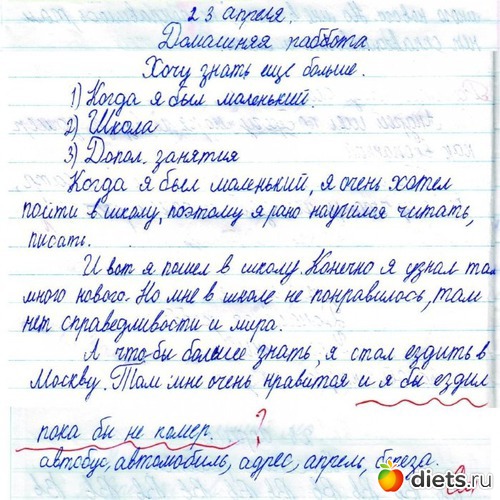 23 апреля.
Домашняя работа
Хочу знать еще больше.
1) Когда я был маленький.
2) Школа
3) Допол. занятия
Когда я был маленький, я очень хотел
пойти в школу, поэтому я рано научился читать,
писать.
И вот я пошел в школу. Конечно я узнал там
много нового. Но мне в школе не понравилось, там
нет справедливости и мира.
А чтобы больше знать, я стал ездить в
Москву. Там мне очень нравится и я бы ездил
пока бы не помер. ?
автобус, автомобиль, адрес, апрель, береза.
diets.ru